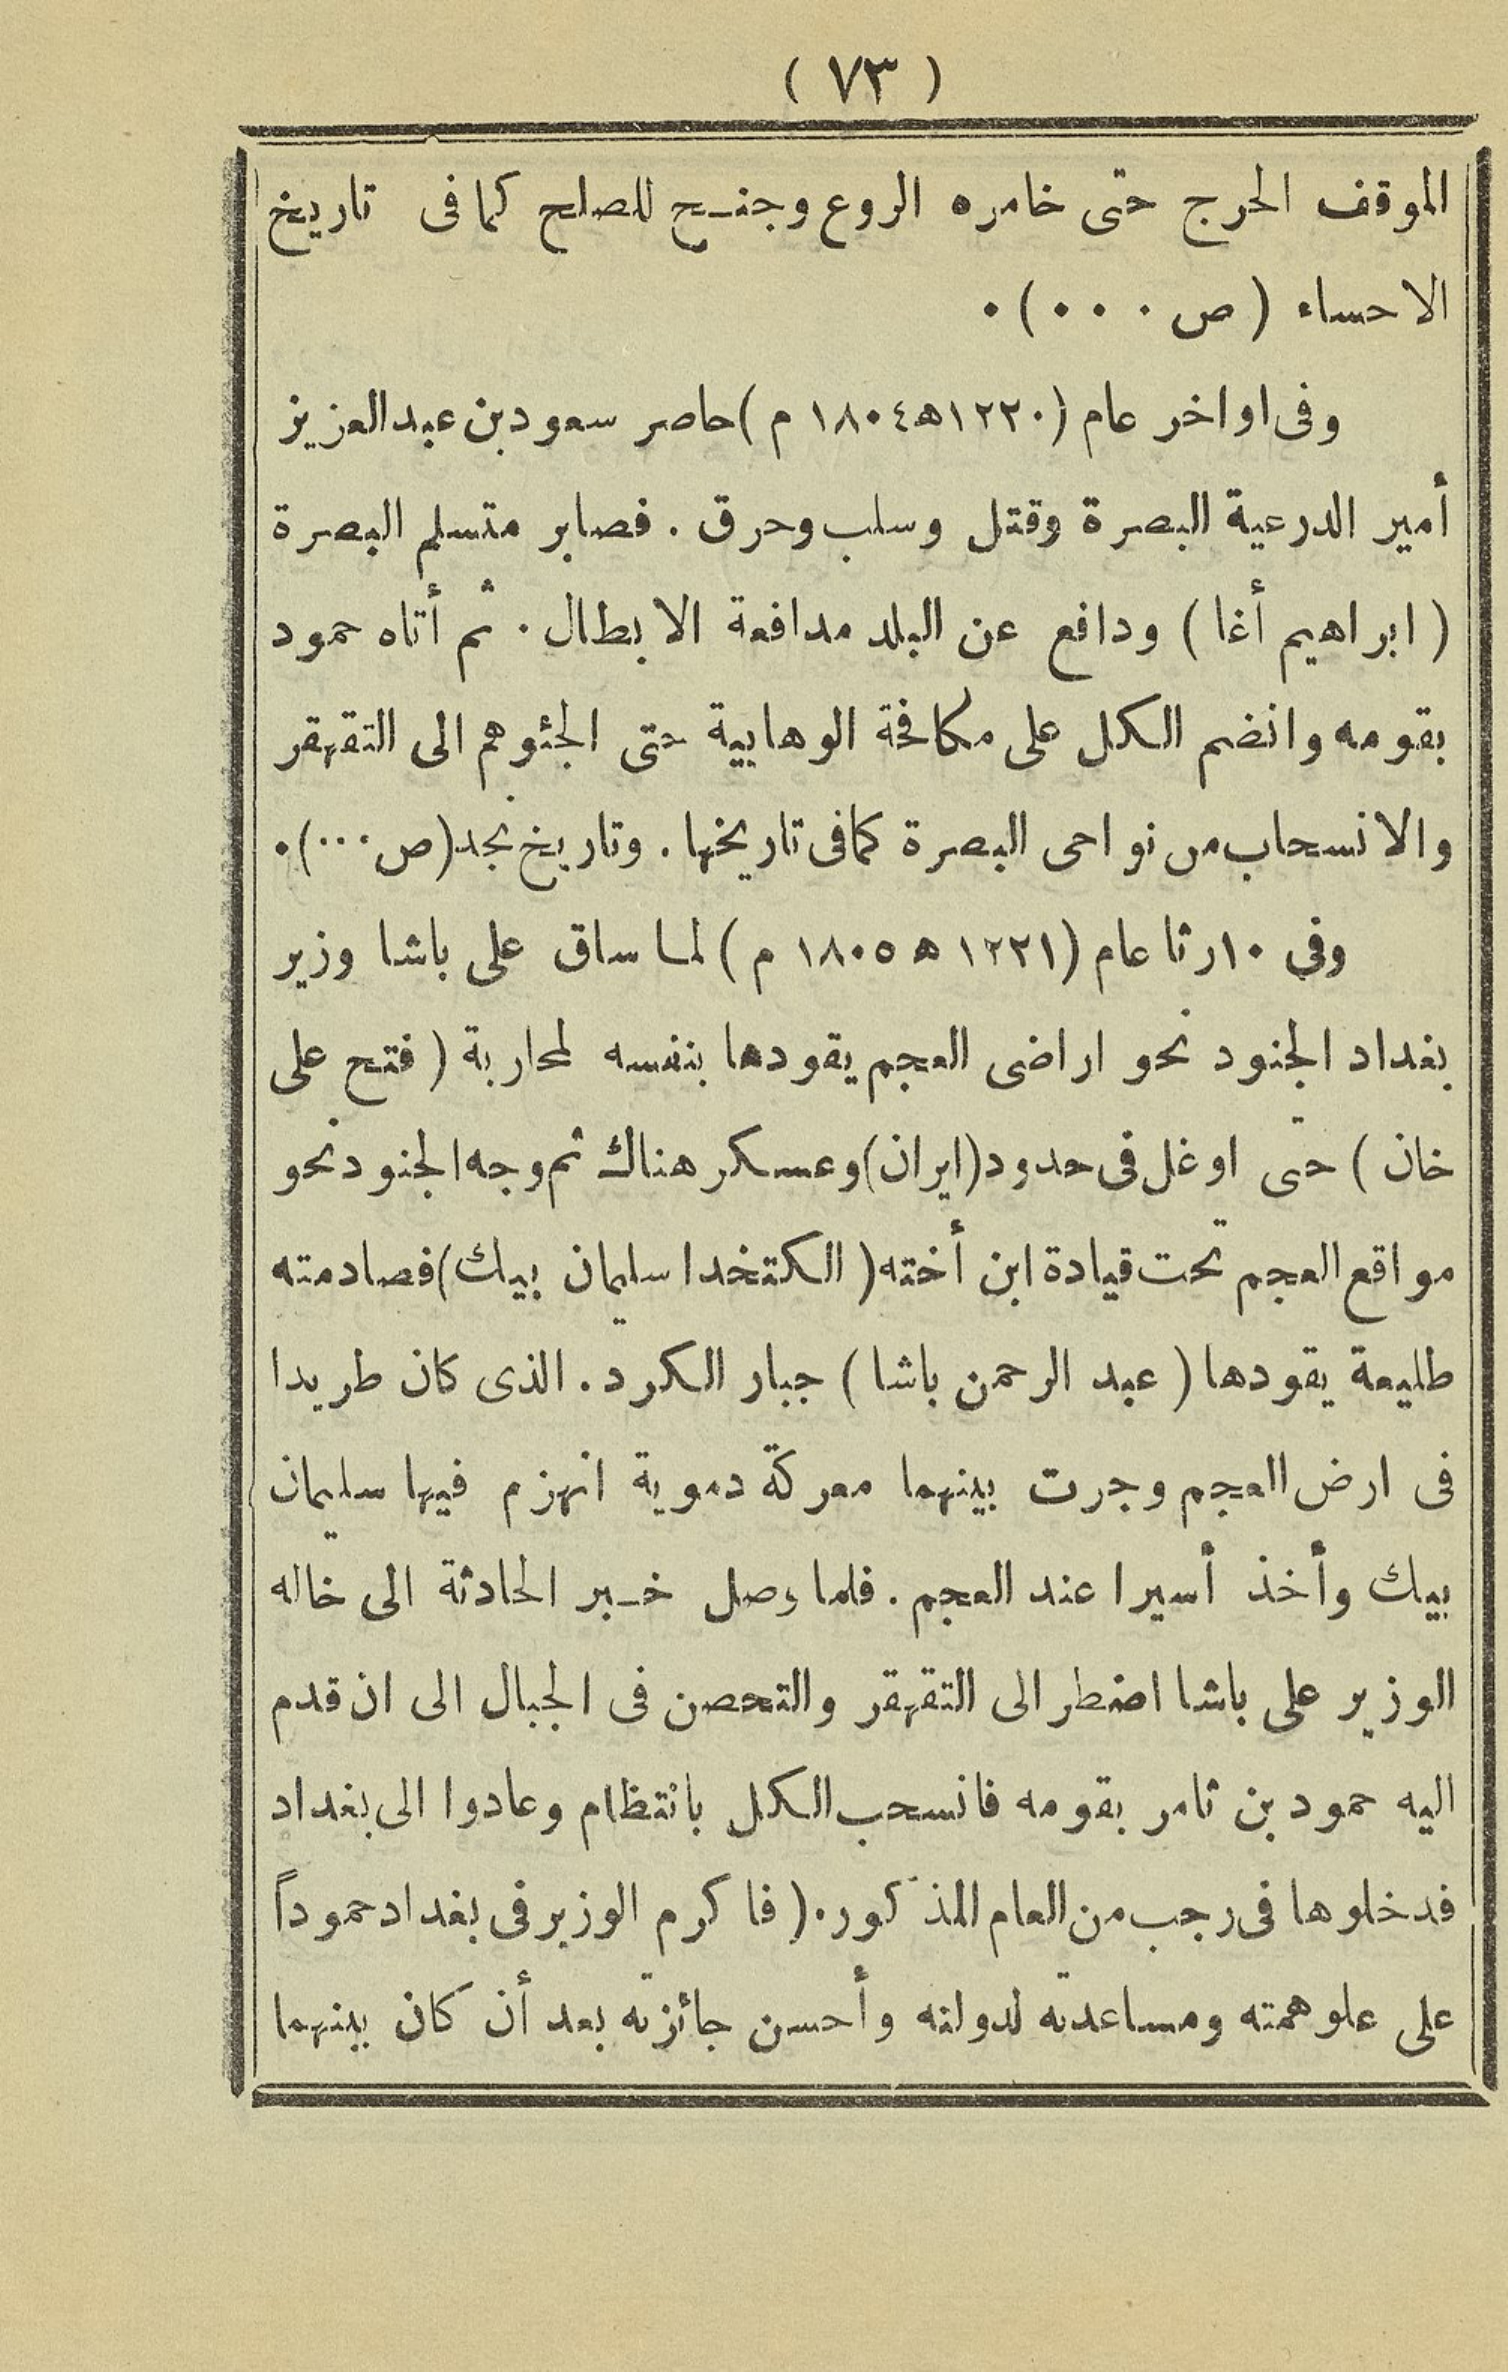 ( ٧٣ )
الموقف الحرج حتى خامره الروع وجنح للصلح كما فى تاريخ
الاحساء ( ص ٠ ٠ ٠ ) ٠
وفى اواخر عام (١٢٢٠ه١٨٠٤ م ) حاصر سعود بن عبد العزيز
أمير الدرعية البصرة وقتل وسلب وحرق . فصابر متسلم البصرة
( ابراهيم أغا ) ودافع عن البلد مدافعة الابطال . ثم أتاه حمود
بقومه وانضم الكل على مكافحة الوهابية حتى الجئوهم الى التقهقر
والانسحاب من نواحى البصرة كما فى تاريخها . وتاريخ نجد (ص ٠٠٠) ٠
وفي ١٠ رثا عام (١٢٢١ ه ١٨٠٥ م ) لما ساق على باشا وزير
بغداد الجنود نحو اراضى العجم يقودها بنفسه لمحاربة ( فتح على
خان ) حتّى اوغل فى حدود (ايران) وعسكر هناك ثم وجه الجنود نحو
مواقع العجم تحت قيادة ابن أخته ( الكتخدا سليمان بيك) فصادمته
طليعة يقودها ( عبد الرحمن باشا ) جبار الكرد . الذى كان طريدا
فى ارض العجم وجرت بينهما معركة دموية انهزم فيها سليمان
بيك وأخذ أسيرا عند العجم . فلما وصل خبر الحادثة الى خاله
الوزير على باشا اضطر الى التقهقر والتحصن فى الجبال الى ان قدم
اليه حمود بن ثامر بقومه فانسحب الكل بانتظام وعادوا الى بغداد
فدخلوها فى رجب من العام المذكور . ( فاكرم الوزير فى بغداد حموداً
على علو همته ومساعدته لدولته وأحسن جائزته بعد أن كان بينهما